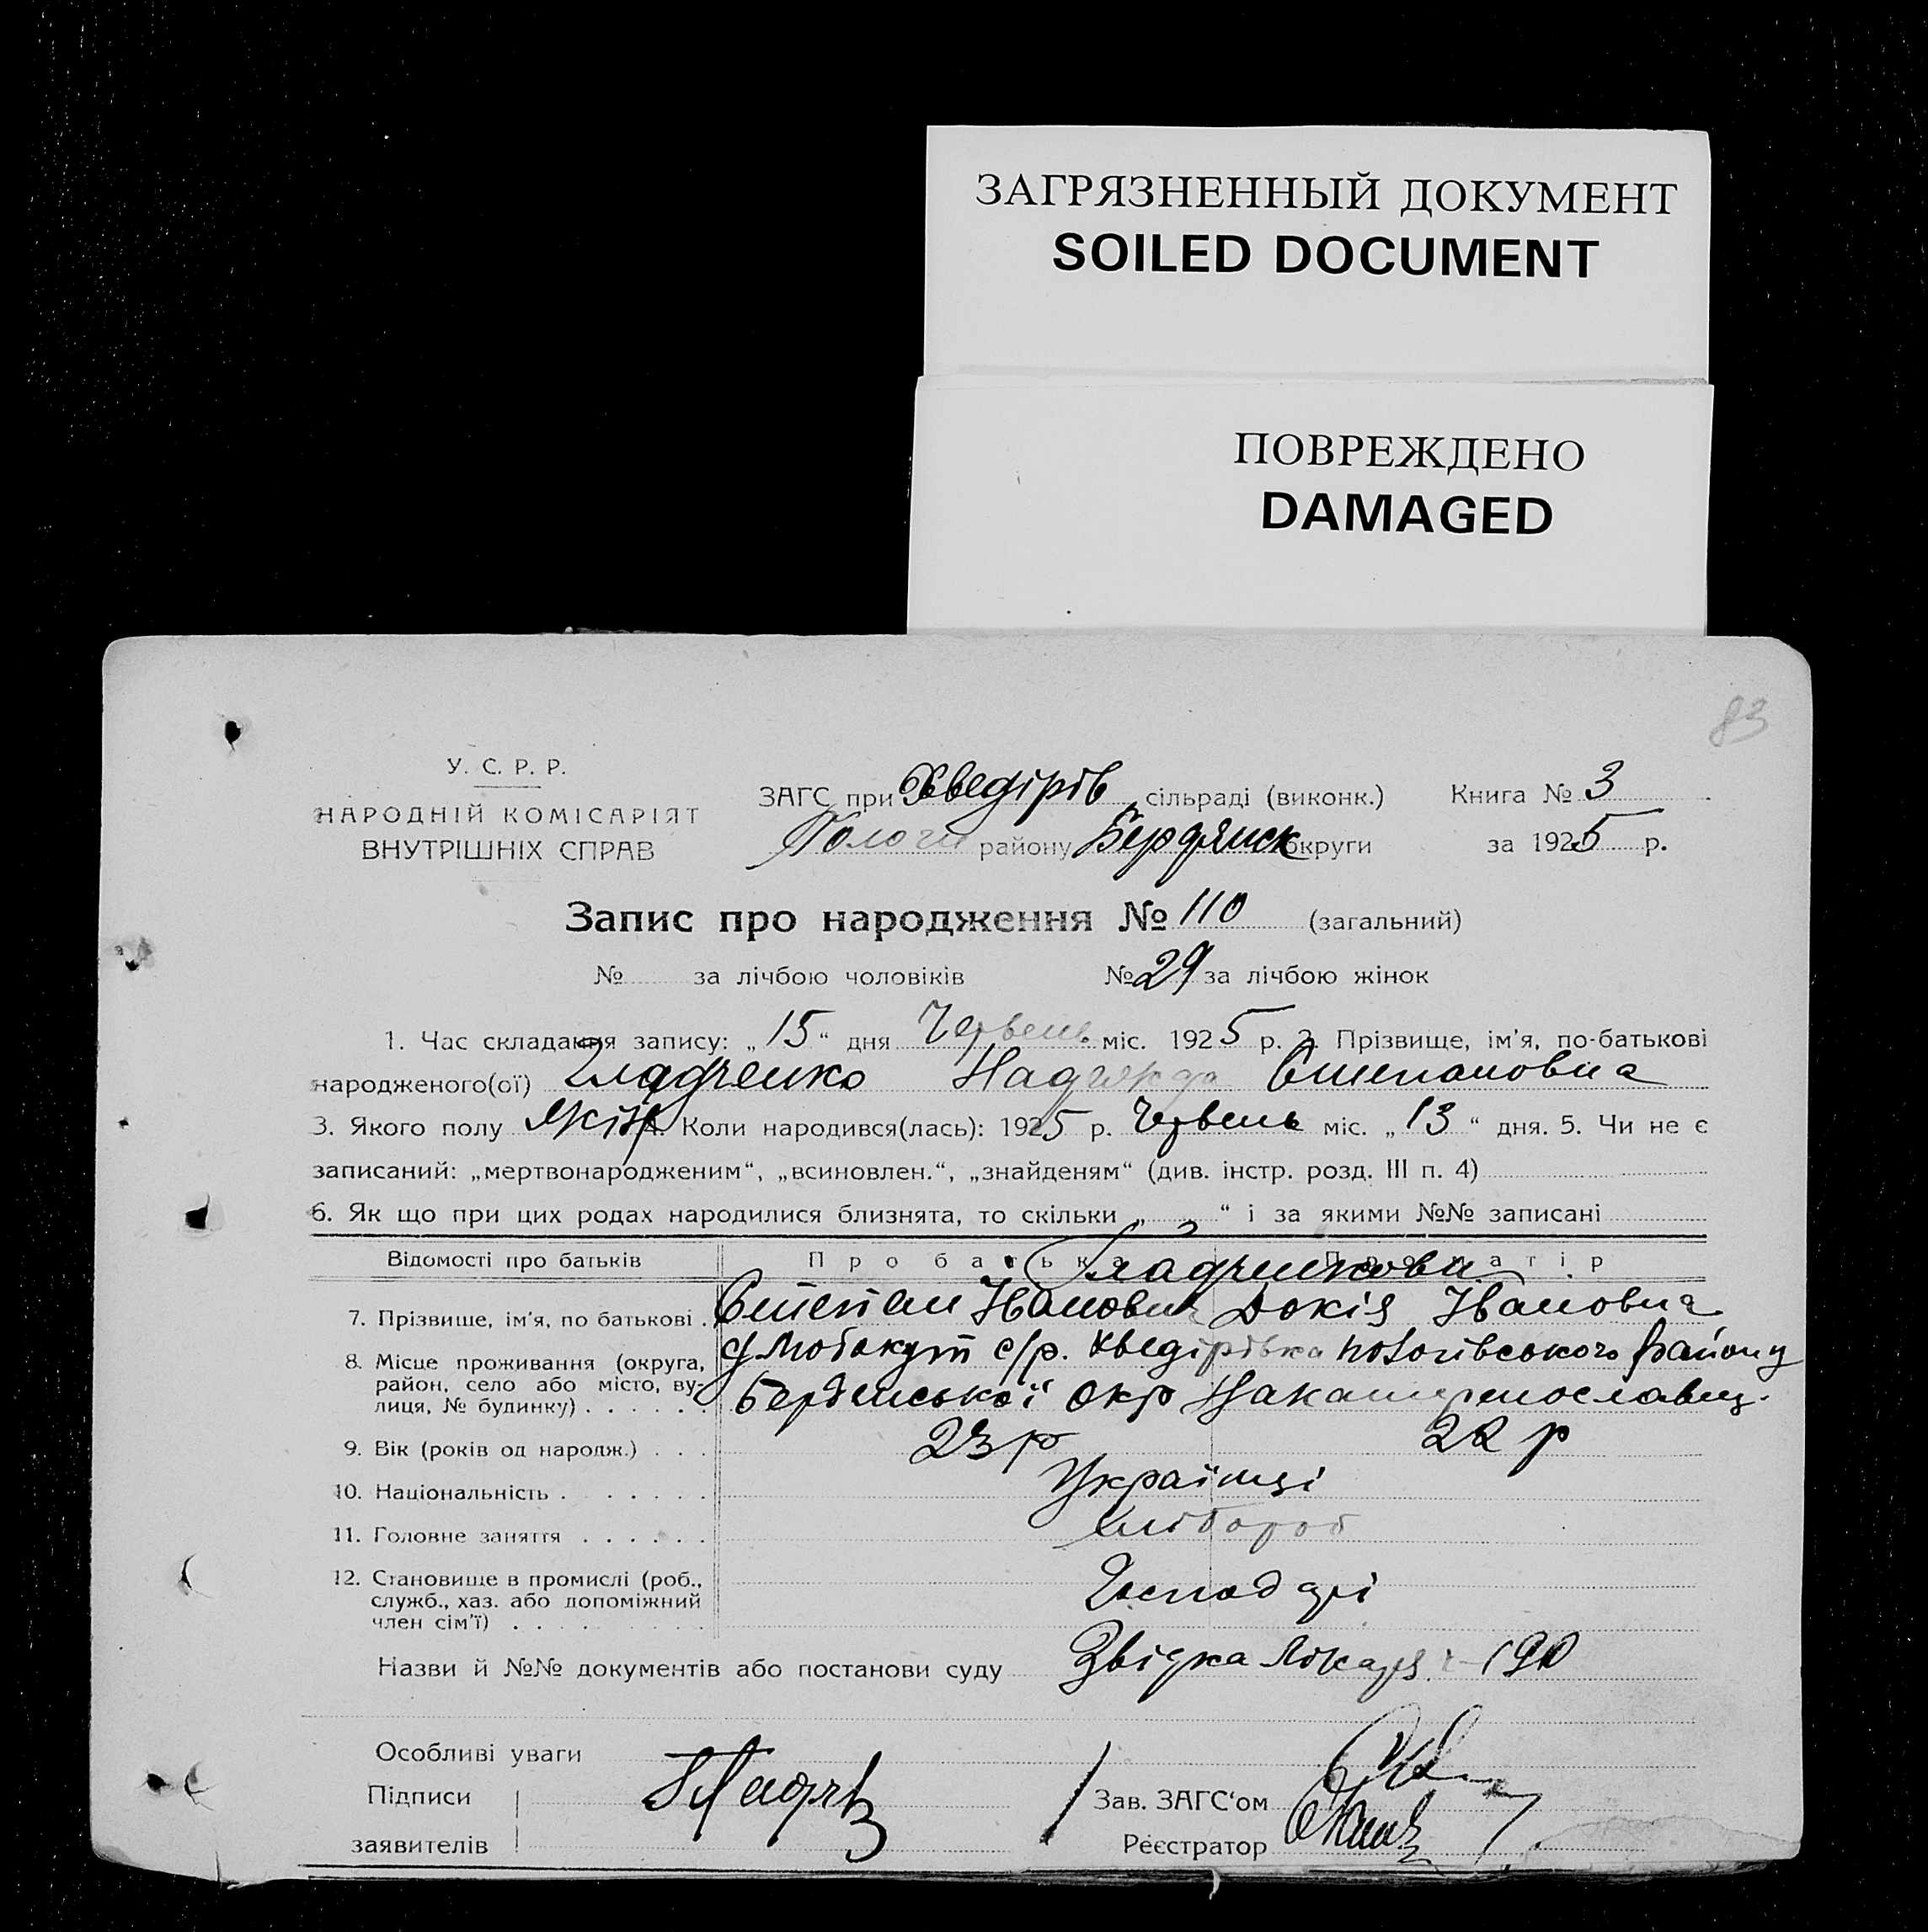 ЗАГРЯЗНЕННЫЙ ДОКУМЕНТ
SOILED DOCUMENT
ПОВРЕЖДЕНО
DAMAGED
83
У. С. Р. Р.
НАРОДНІЙ КОМІСАРІЯТ
ВНУТРІШНІХ СПРАВ
ЗАГС при Хведірів сільраді (виконк.) Книга № 3
Пологи району Бердянск округи за 1925 р.
Запис про народження № 110 (загальний)
№ за лічбою чоловіків № 29 за лічбою жінок
1. Час складання запису: „15“ дня Червень міс. 1925 р. 2. Прізвище, ім'я, по-батькові
народженого(ої) Гладченко Надежда Степановна
3. Якого полу жін 4. Коли народився(лась): 1925 р. Червень міс. „13“ дня. 5. Чи не є
записаний: „мертвонародженим“, „всиновлен.“, „знайденям“ (див. інстр. розд. III п. 4)
6. Як що при цих родах народилися близнята, то скільки „ “ і за якими №№ записані
Відомості про батьків Про батька Про матір
Гладченкови
7. Прізвище, ім'я, по батькові . Степан Іванович Докія Івановна
8. Місце проживання (округа, с/р. Хведірівка Пологівського району
район, село або місто, ву-
лиця, № будинку) . . . . . . Бердянської окр
9. Вік (років од народж.) . . . 23 р 22 р
10. Національність . . . . . . . Українці
11. Головне заняття . . . . . . хлібороб
12. Становище в промислі (роб.,
служб., хаз. або допоміжний Господарі
член сім'ї) . . . . . . . . .
Назви й №№ документів або постанови суду Звідка Лікаря 190
Особливі уваги
Підписи
Зав. ЗАГС'ом
заявителів
Реєстратор